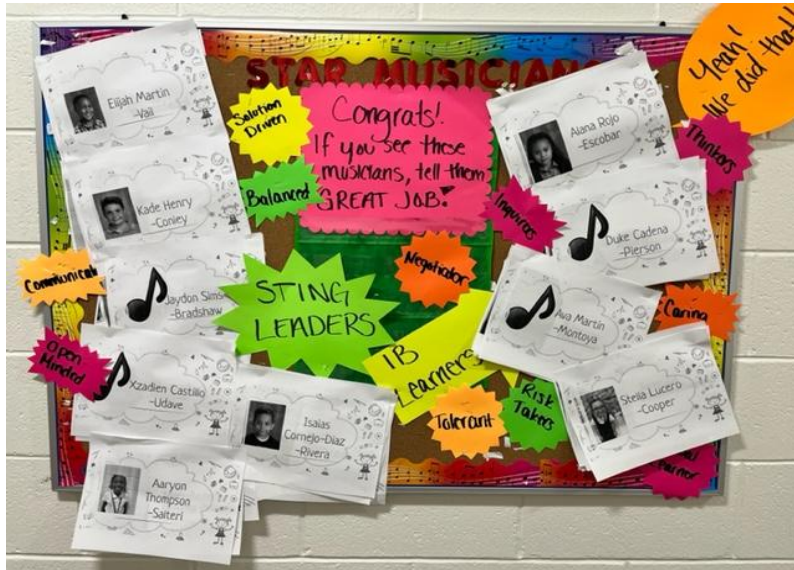 STAR MUSICIANS
Yeah!
We did that!
Elijah Martin
-Vail
Solution
Driven
Congrats!
If you see these
musicians, tell them
GREAT JOB!
Alana Rojo
-Escobar
Thinkers
Kade Henry
-Conley
Balanced
Inquirers
Duke Cadena
-Pierson
Jaydon Sims
-Bradshaw
STING
LEADERS
Negotiator
Awa Martin
-Montoya
Caring
Open
Minded
Xzadien Castillo
-Udave
IB
Learners
Isaias
Cornejo-Diaz
-Rivera
Tolerant
Risk
Takers
Stella Lucero
-Cooper
Aaryon
Thompson
-Salteri
Learner